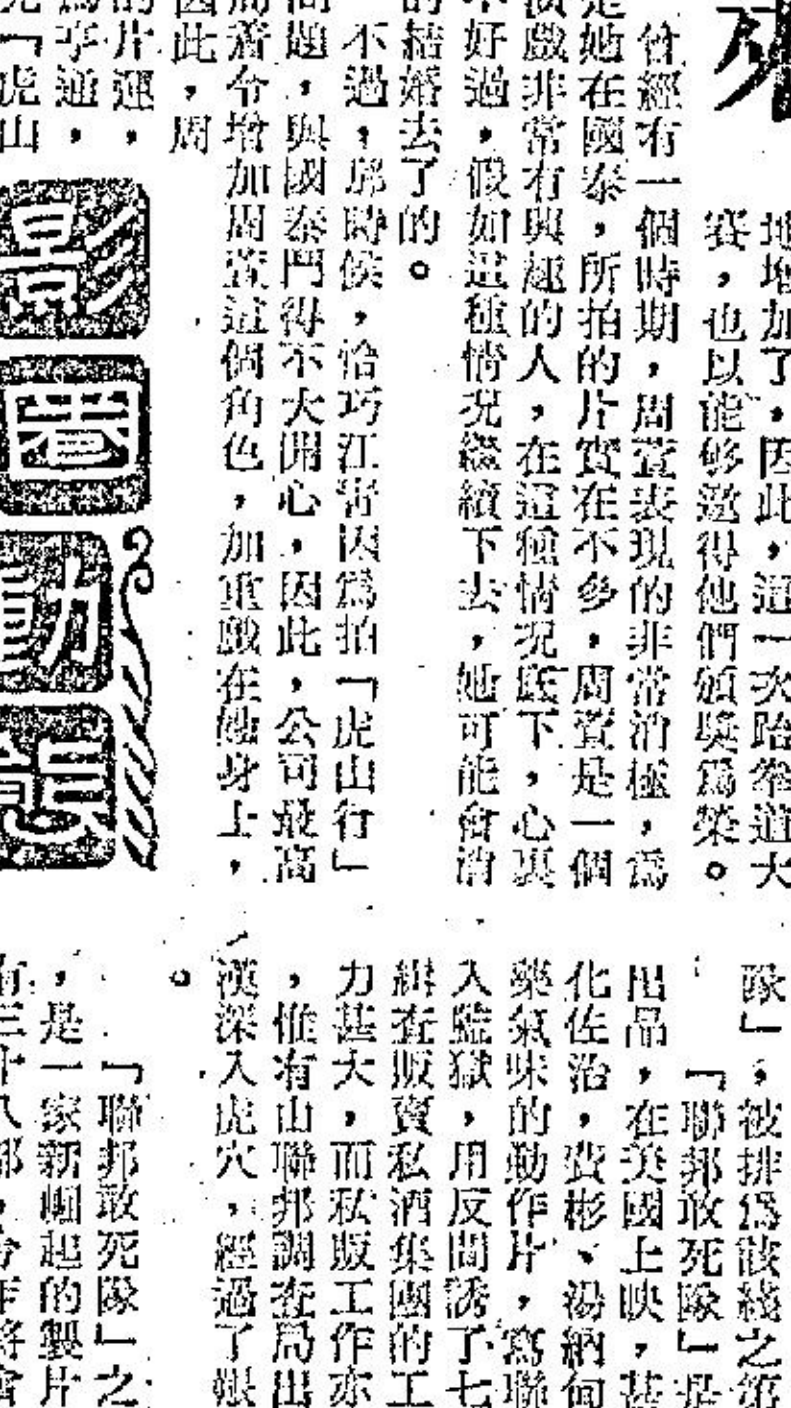 地增加了，因此，這一次跆拳道大
賽，也以能够邀得他們頒獎爲榮。
曾經有一個時期，周萱表現的非常消極，爲
是她在國泰，所拍的片實在不多，周萱是一個
演戲非常有興趣的人，在這種情况底下，心裏
不好過，假如這種情况繼續下去，她可能會消
的結婚去了的。
不過，那時候，恰巧江青因爲拍「虎山行」
問題，與國泰鬥得不大開心，因此，公司最高
周着令增加周萱這個角色，加重戲在她身上，
因此，周
的片運，
爲亨通，
「虎山
影圈動態
隊」，被排爲該綫之第
「聯邦敢死隊」是
出品，在美國上映，甚
化佐治，費彬、湯納甸
藥氣味的動作片，寫聯
入監獄，用反間誘了七
緝查販賣私酒集團的工
力甚大，而私販工作亦
，惟有山聯邦調查局出
漢深入虎穴，經過了艱
。
「聯邦敢死隊」之
，是一家新崛起的製片
有三十八部，今年將會